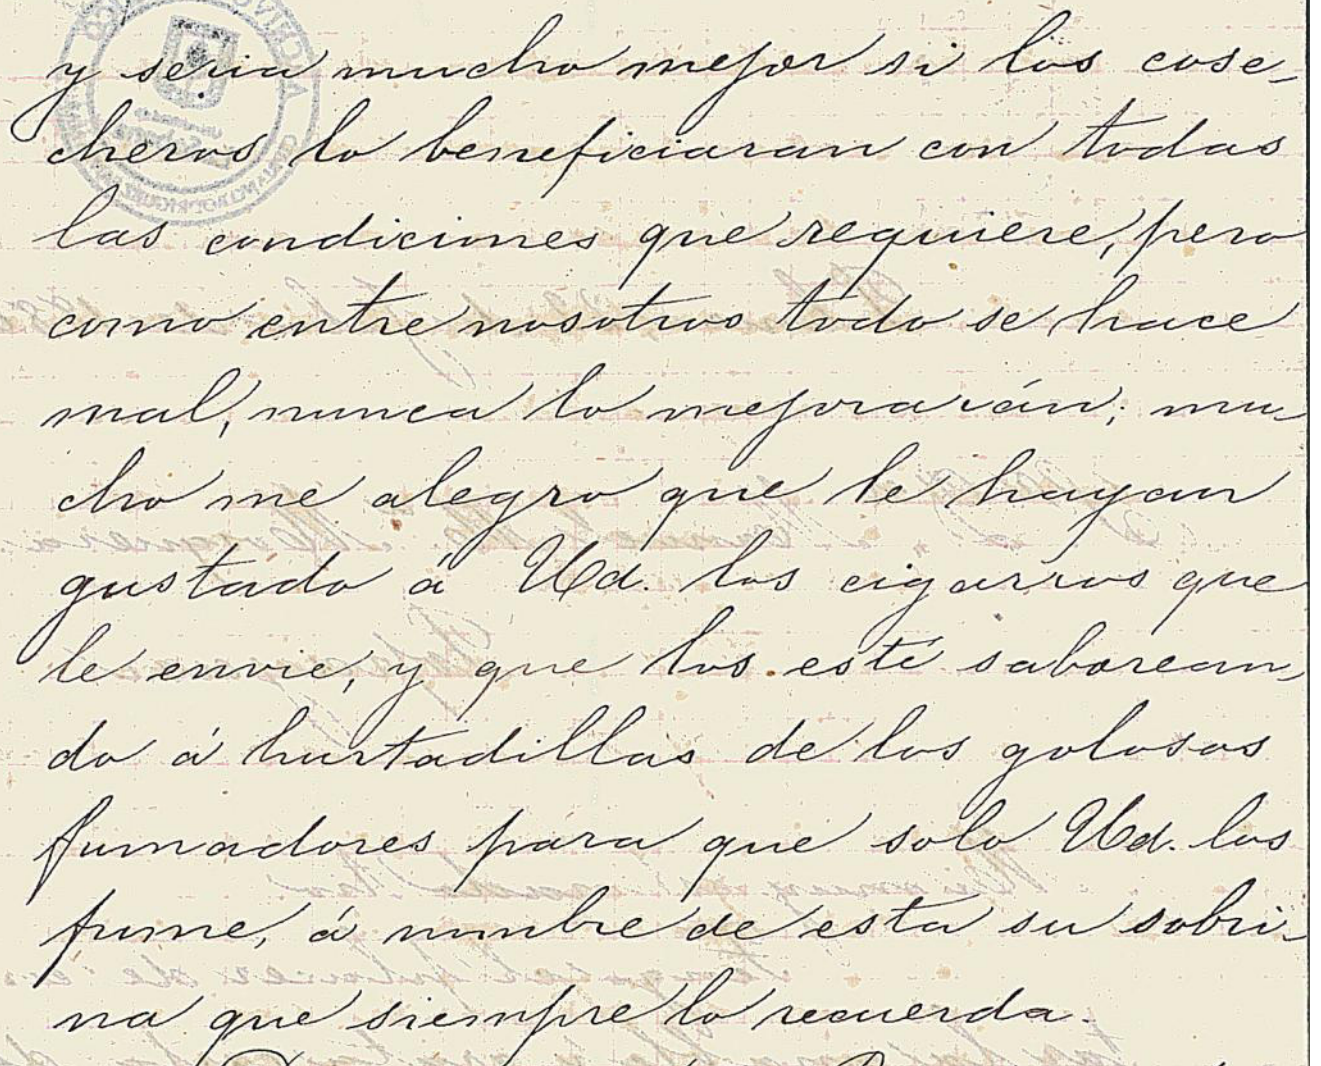 y seria mucho mejor si los cose-
cheros lo beneficiaran con todas
las condiciones que requiere, pero
como entre nosotros todo se hace
mal, nunca lo mejorarán; mu-
cho me alegro que le hayan
gustado á Ud. los cigarros que
le envie, y que los esté saborean-
do á hurtadillas de los golosos
fumadores para que solo Ud. los
fume, á nombre de esta su sobri-
na que siempre lo recuerda.